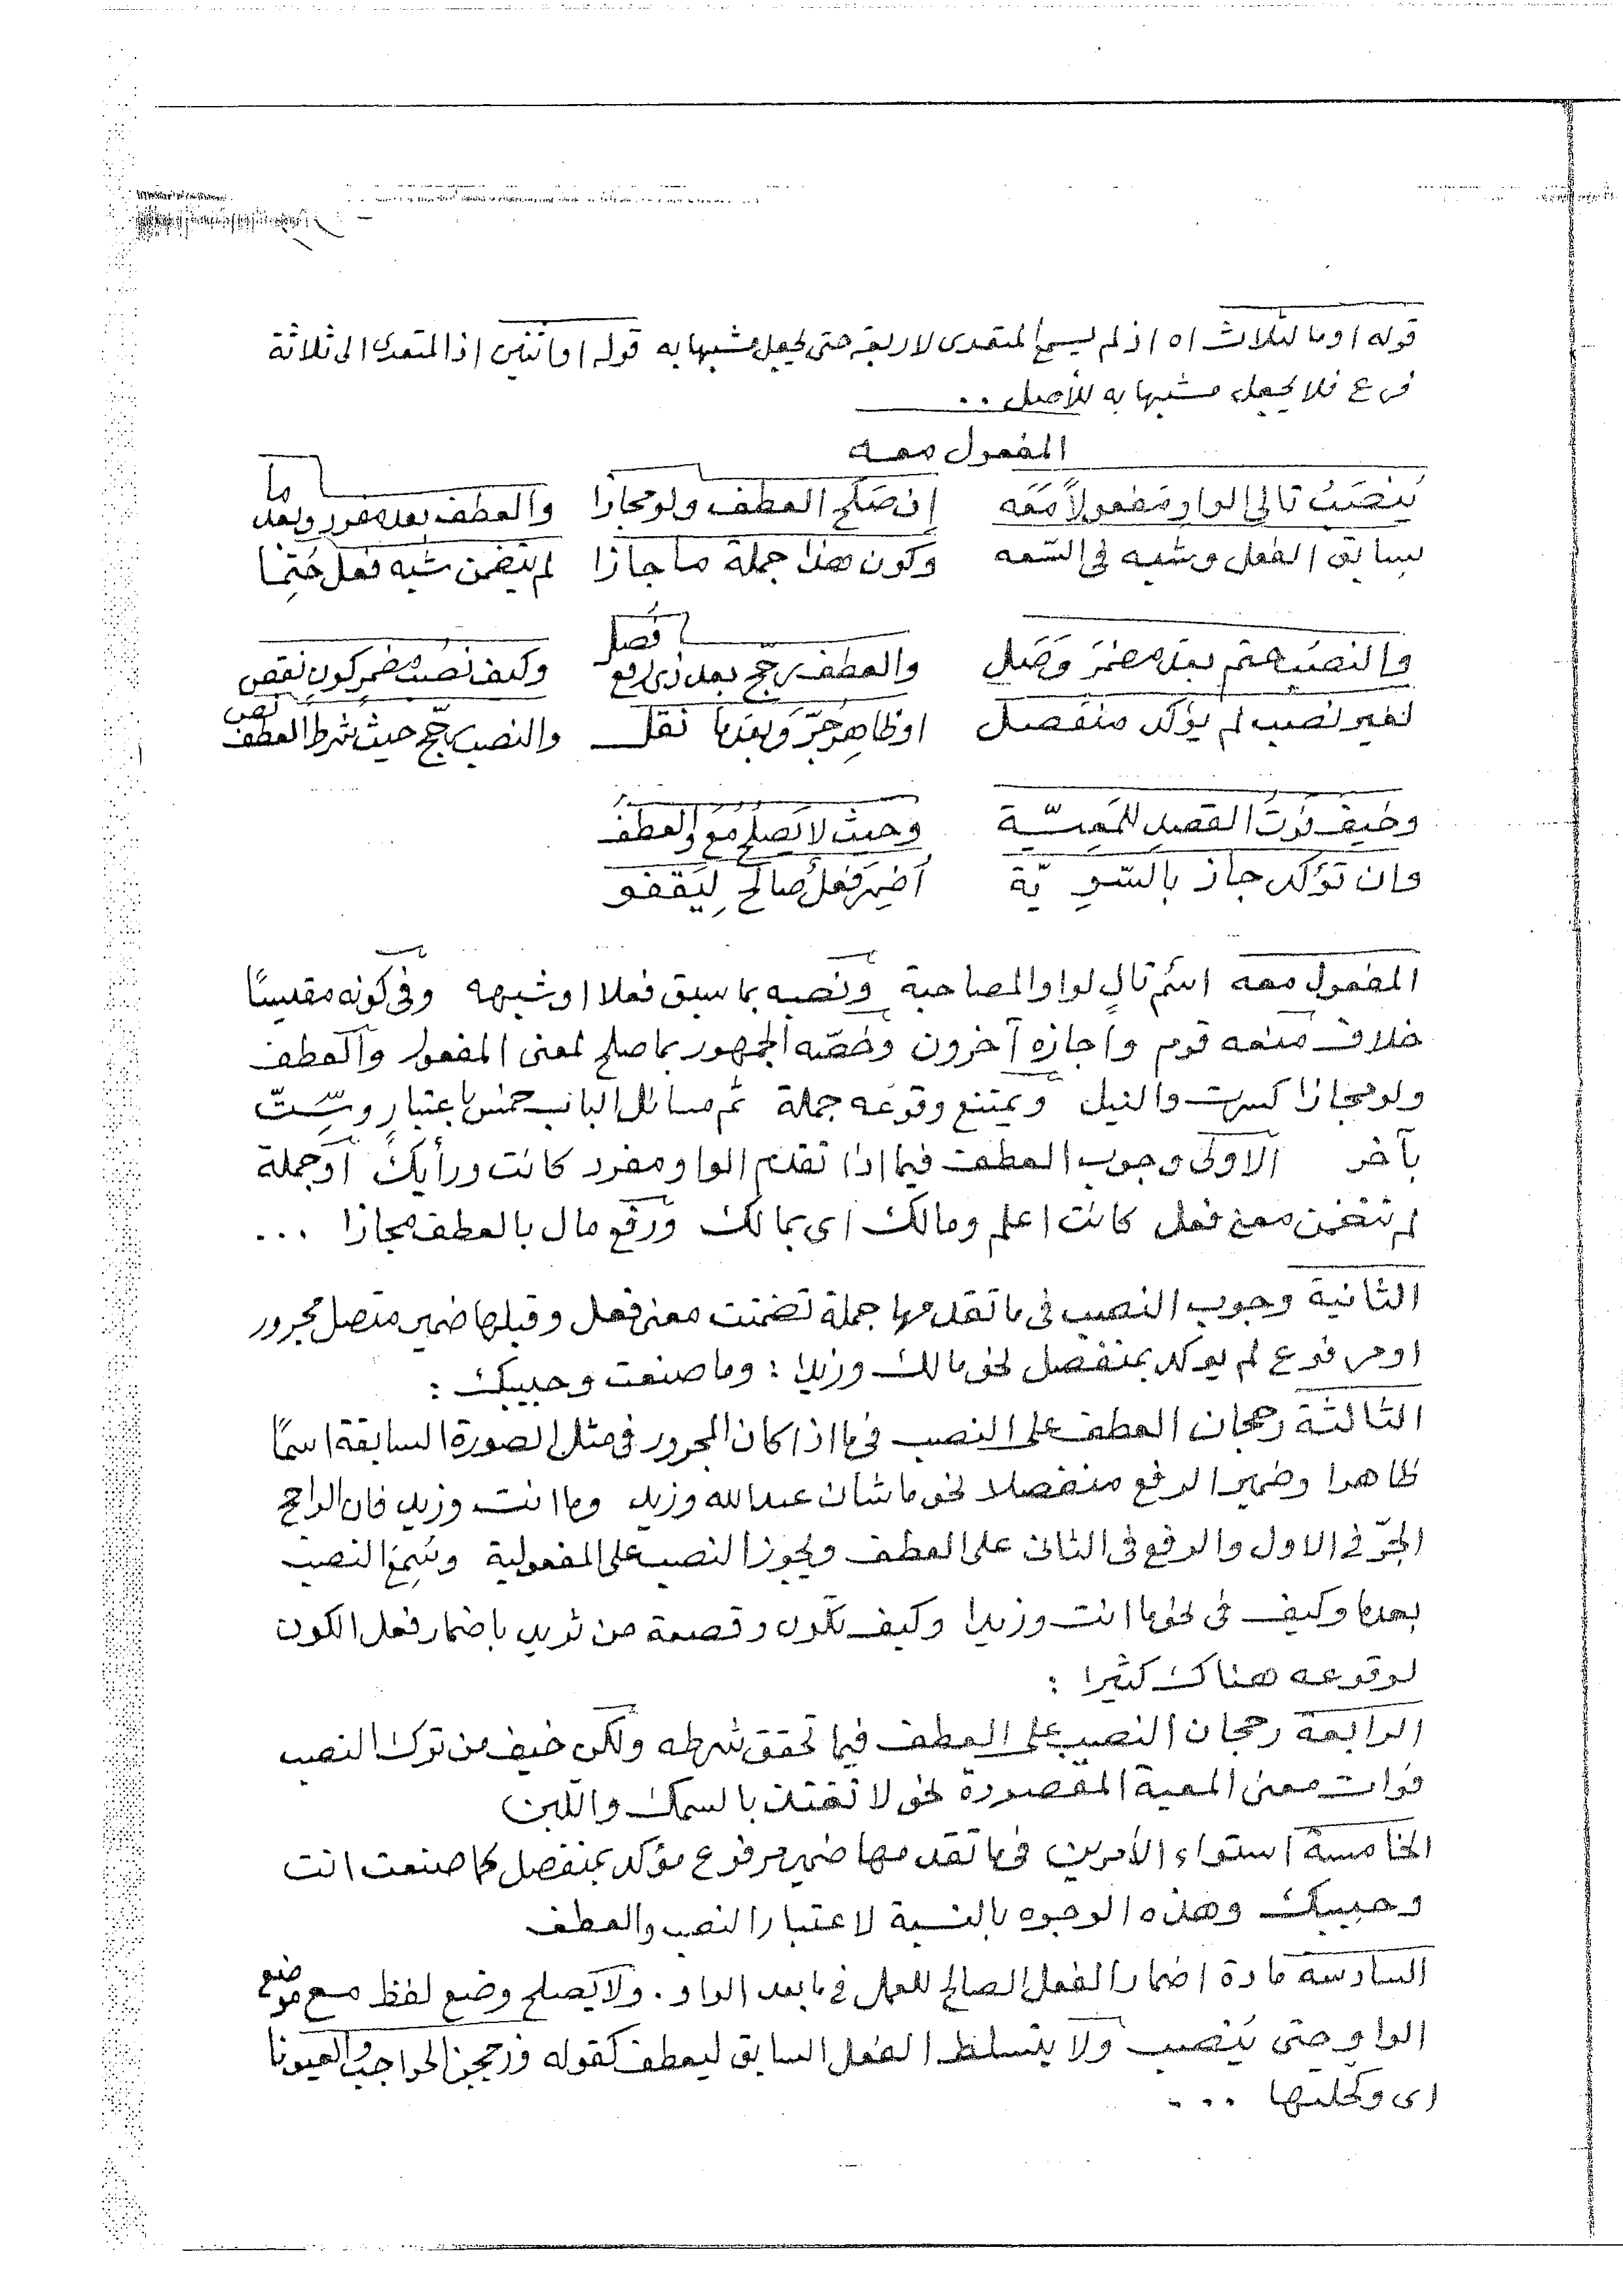 قوله اوما لثلاث اه اذ لم يسمع المتعدى لاربعة حتى يجعل مشبها به قوله اواثنين اذ المتعدى الى ثلاثة
فرع فلا يجعل مشبها به للأصل . .
المفعول معه
يُنصَبُ تالى الواو مفعولاً مَعَه إن صَلَح العطف ولو مجازا والعطف بعد مفرد وبعد ما
بسابق الفعل وشبه فى السّعه وكون هذا جملة ما جازا لم يتضمن شبه فعل حُتِمَا
والنصبُ حتم بعد مضمَرٍ وَصَل والعطف رجّح بعد ذى رفع فُصل وكيف نصبُ مضمرِ كونٍ نقص
لغير نصب لم يؤكد منفصل اوظاهرٍ جُرَّ وبعدما نقل والنصب رجّح حيث شرط العطف نص
وخيف فوتُ القصدِ للمَعِيّة وحيث لا يَصلحُ معْ والعطفُ
وان تؤكد جاز بالسّويّة أضمِر فعلٌ صالح لِيَقفو
المفعول معه اسم تالٍ لواو المصاحبة ونصبه بما سبق فعلا اوشبهه وفى كونه مقيسًا
خلاف منعه قوم واجازه آخرون وخصّه الجمهور بما صلح لمعنى المفعول والعطف
ولو مجازا كسرت والنيل ويمتنع وقوعه جملة ثم مسائل الباب خمس باعتبار وسِتّ
بآخر الاولى وجوب العطف فيما اذا تقدم الواو مفرد كانت ورأيك أوجملة
لم تتضمن معنى فعل كانت اعلم ومالك اى بمالك ورفع مال بالعطف مجازا . . .
الثانية وجوب النصب فى ما تقدمها جملة تضمنت معنى فعل وقبلها ضمير متصل مجرور
اومرفوع لم يوكد بمنفصل نحو مالك وزيدا : وما صنعت وحبيبك :
الثالثة رجحان العطف على النصب فى ما اذا كان المجرور فى مثل الصورة السابقة اسمًا
ظاهرا وضمير الرفع منفصلا نحو ما شان عبدالله وزيد وما انت وزيد فان الراجح
الجرّ فى الاول والرفع فى الثانى على العطف ويجوز النصب على المفعولية وسُمِعَ النصب
بعدما وكيف فى نحو ما انت وزيدا وكيف تكون وقصعة من ثريد باضمار فعل الكون
لوقوعه هناك كثيرا :
الرابعة رجحان النصب على العطف فيما تحقق شرطه ولكن خيف من ترك النصب
فوات معنى المعية المقصودة نحو لا تغتذ بالسمك واللبن
الخامسة استواء الأمرين فى ما تقدمها ضمير مرفوع مؤكد بمنفصل كما صنعت انت
وحبيبك وهذه الوجوه بالنسبة لاعتبار النصب والعطف
السادسة مادة اضمار الفعل الصالح للعمل فى ما بعد الواو . ولا يصلح وضع لفظ مع موضع
الواو حتى يُنصب ولا يتسلط الفعل السابق ليعطف كقوله وزججن الحواجب والعيونا
اى وكحلنها . . .